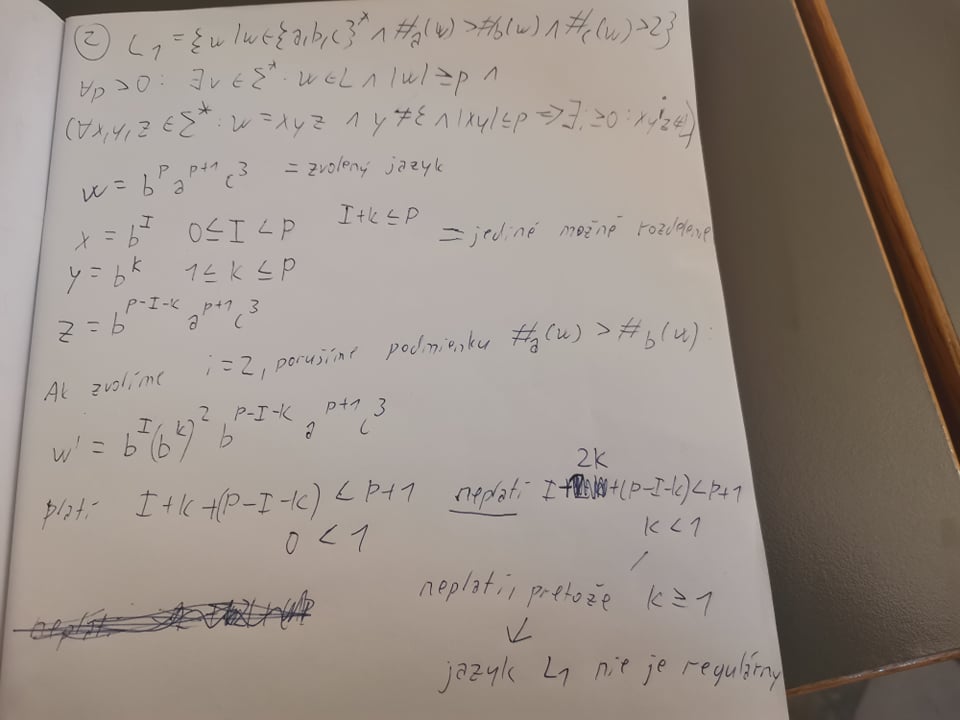 ② L₁ = {w | w ∈ {a,b,c}* ∧ #a(w) > #b(w) ∧ #c(w) > 2}
∀p > 0: ∃w ∈ Σ*: w ∈ L ∧ |w| ≥ p ∧
(∀x,y,z ∈ Σ*: w = xyz ∧ y ≠ ε ∧ |xy| ≤ p => ∃i ≥ 0: xyⁱz ∉ L)
w = b^p a^(p+1) c^3 = zvolený jazyk
x = b^I 0 ≤ I < p I+k ≤ p
y = b^k 1 ≤ k ≤ p = jediné možné rozdelenie
z = b^(p-I-k) a^(p+1) c^3
Ak zvolíme i = 2, porušíme podmienku #a(w) > #b(w):
w' = b^I (b^k)^2 b^(p-I-k) a^(p+1) c^3
platí I+k+(p-I-k) < p+1 neplatí I+2k+(p-I-k) < p+1
0 < 1 k < 1
neplatí, pretože k ≥ 1
↓
jazyk L₁ nie je regulárny